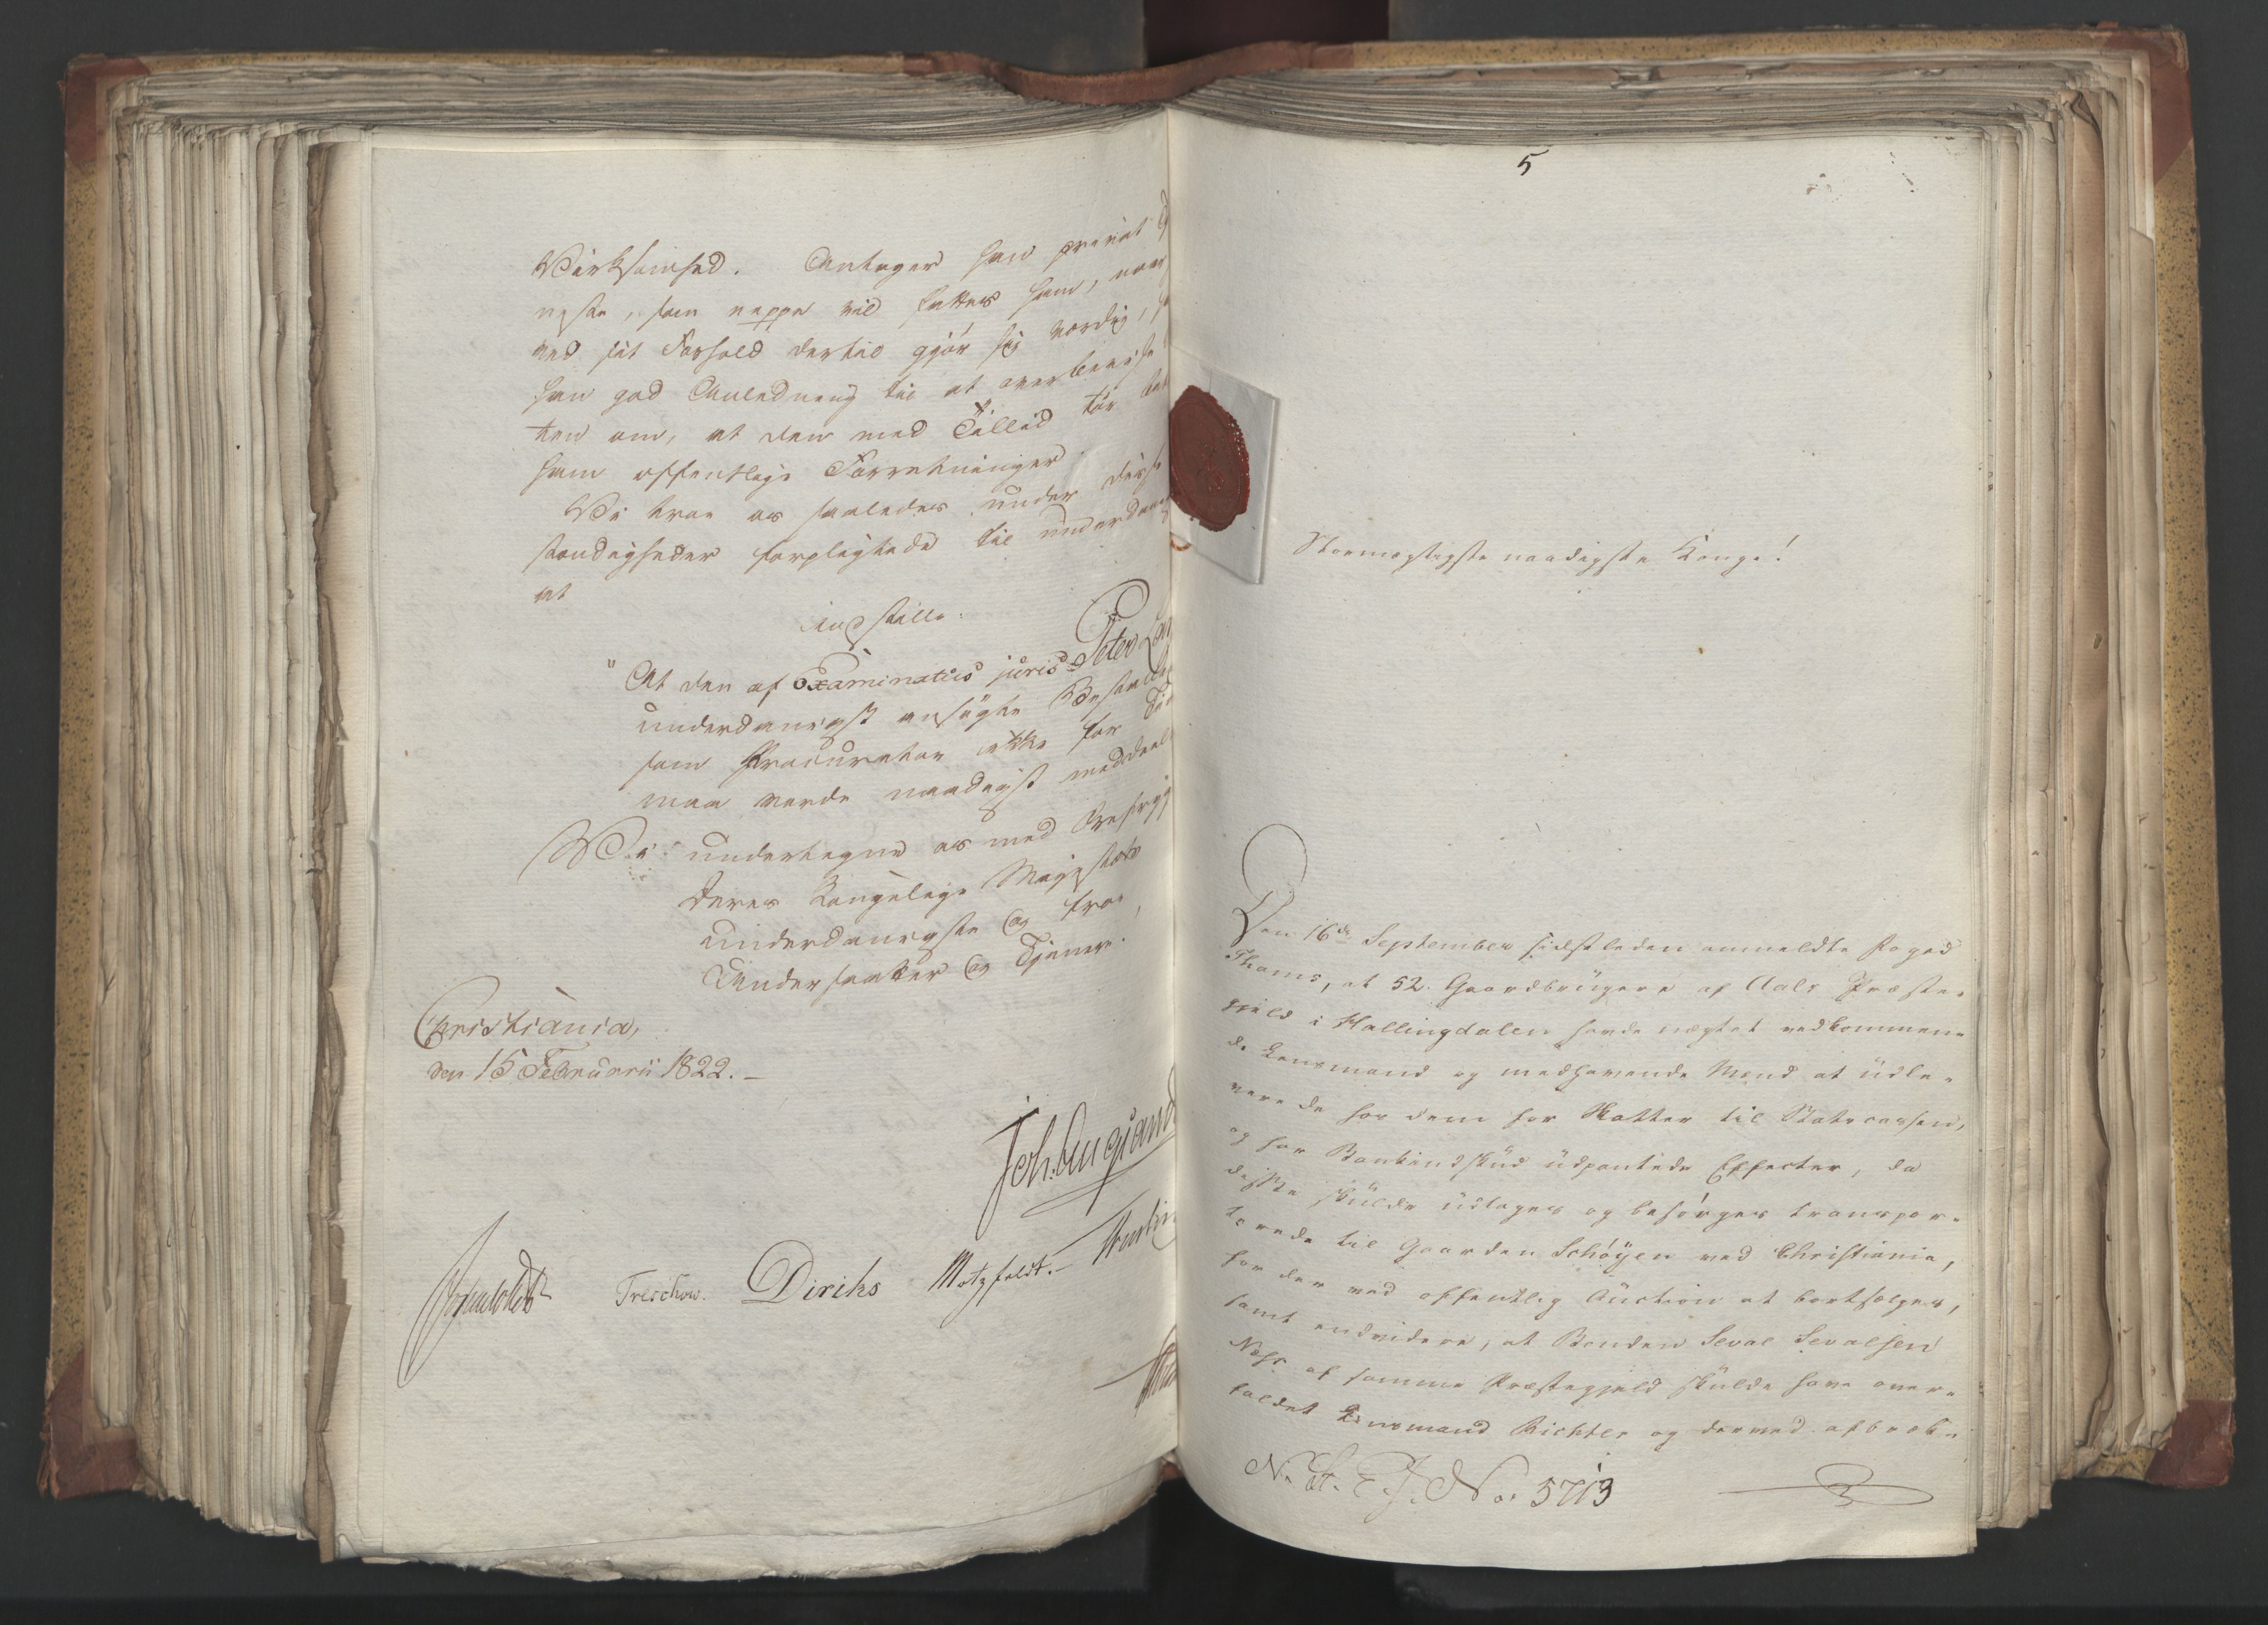 Virksomhed. Antager han privat
neste, som neppe vil fattes ham, naar
ved sit Forhold dertil gjør sig værdig,
han god Anledning til at overbeviise
ten om, at den med Tillid tør
ham offentlige Forretninger.
Vi troe os saaledes under disse
stændigheder forpligtede til underdan
at
indstille:
"At den af Examinatus juris Peter
underdanigst ansøgte Bestalling
som Procurator ikke for
maa vorde naadigst meddeelt
Vi undertegne os med
Deres Kongelige Majestæts
underdanigste og troe
Undersaatter og Tjenere.
Christiania,
den 15 Februarii 1822.-
Treschow. Diriks Motzfeldt.-
5
Stormægtigste naadigste Konge!
Den 16de September sidstleden anmeldte Foged
Thams, at 52. Gaardbrugere af Aals Præste-
gjeld i Hallingdalen havde nægtet vedkommen-
de Lensmand og medhavende Mænd at udle-
vere de hos dem for Skatter til Statscassen,
og for Bankindskud udpantede Effecter, da
disse skulde udtages og besørges transpor-
terede til Gaarden Schøyen ved Christiania,
for der ved offentlig Auction at bortsælges,
samt endvidere, at Bonden Seval Sevalsen
Næss af samme Præstegjeld skulde have over-
faldet Lensmand Richter og derved afbrek-
No. 5713